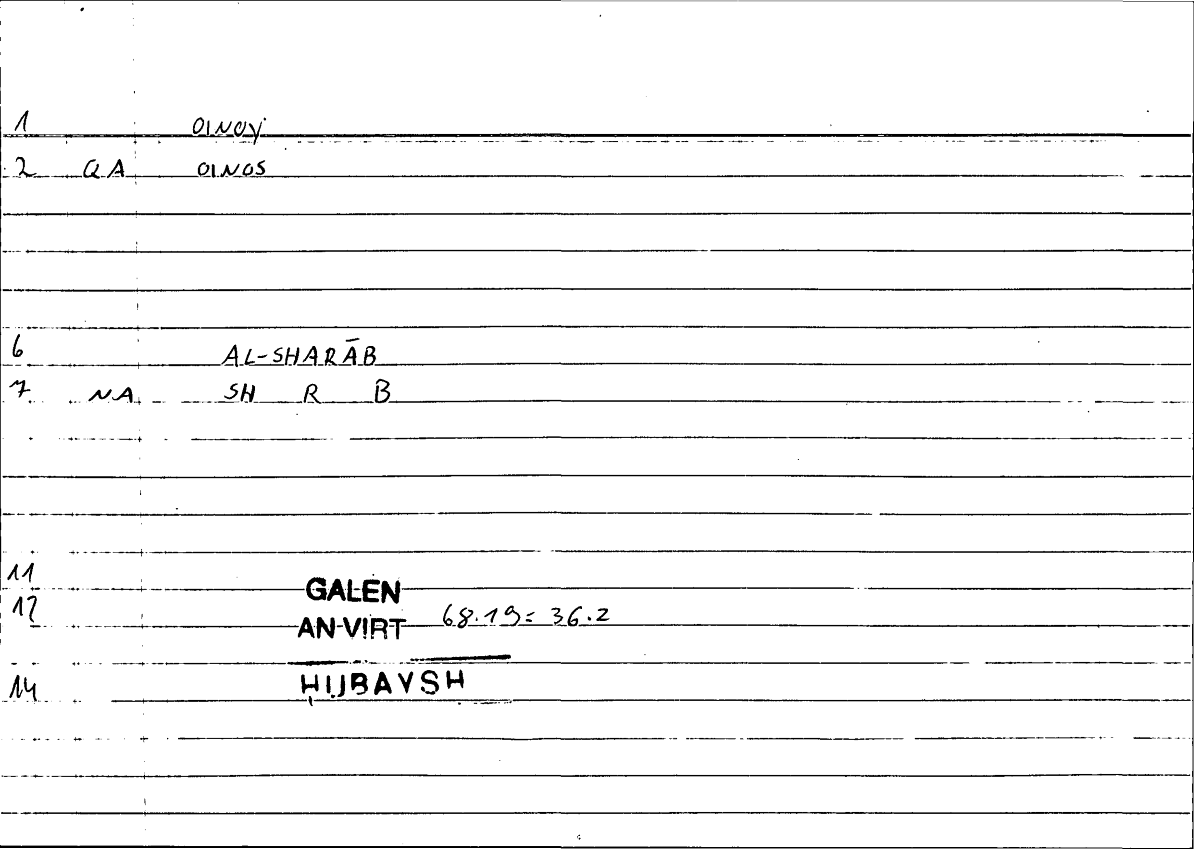 1 OINOY
2 QA OINOS
6 AL-SHARĀB
7 NA SH R B
11 GALEN
12 AN-VIRT 68.19=36.2
14 ḤUBAYSH